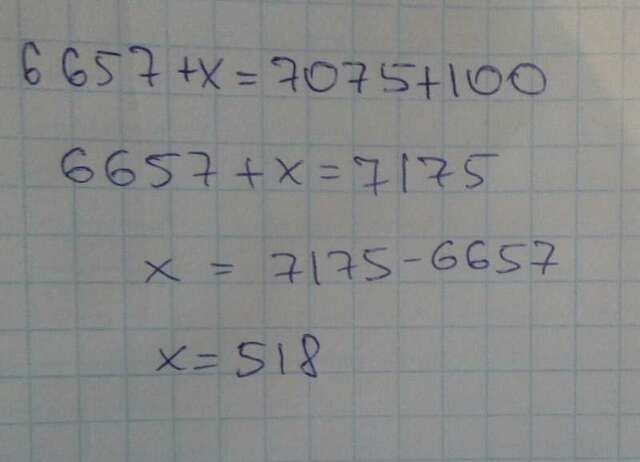 6657+x=7075+100
6657+x=7175
x = 7175-6657
x=518